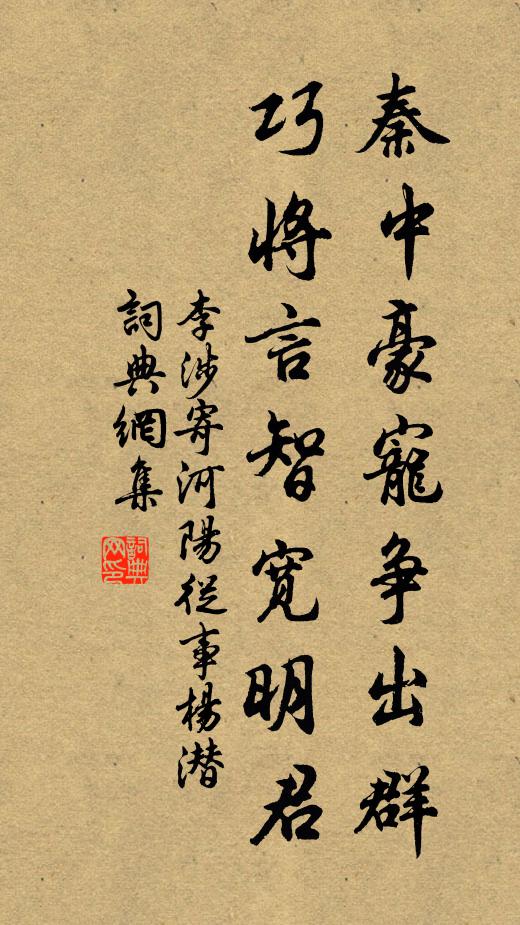 秦中豪寵争出群
巧將言智寛明君
李涉寄河陽從事楊潜
詞典網集
詞典
网印